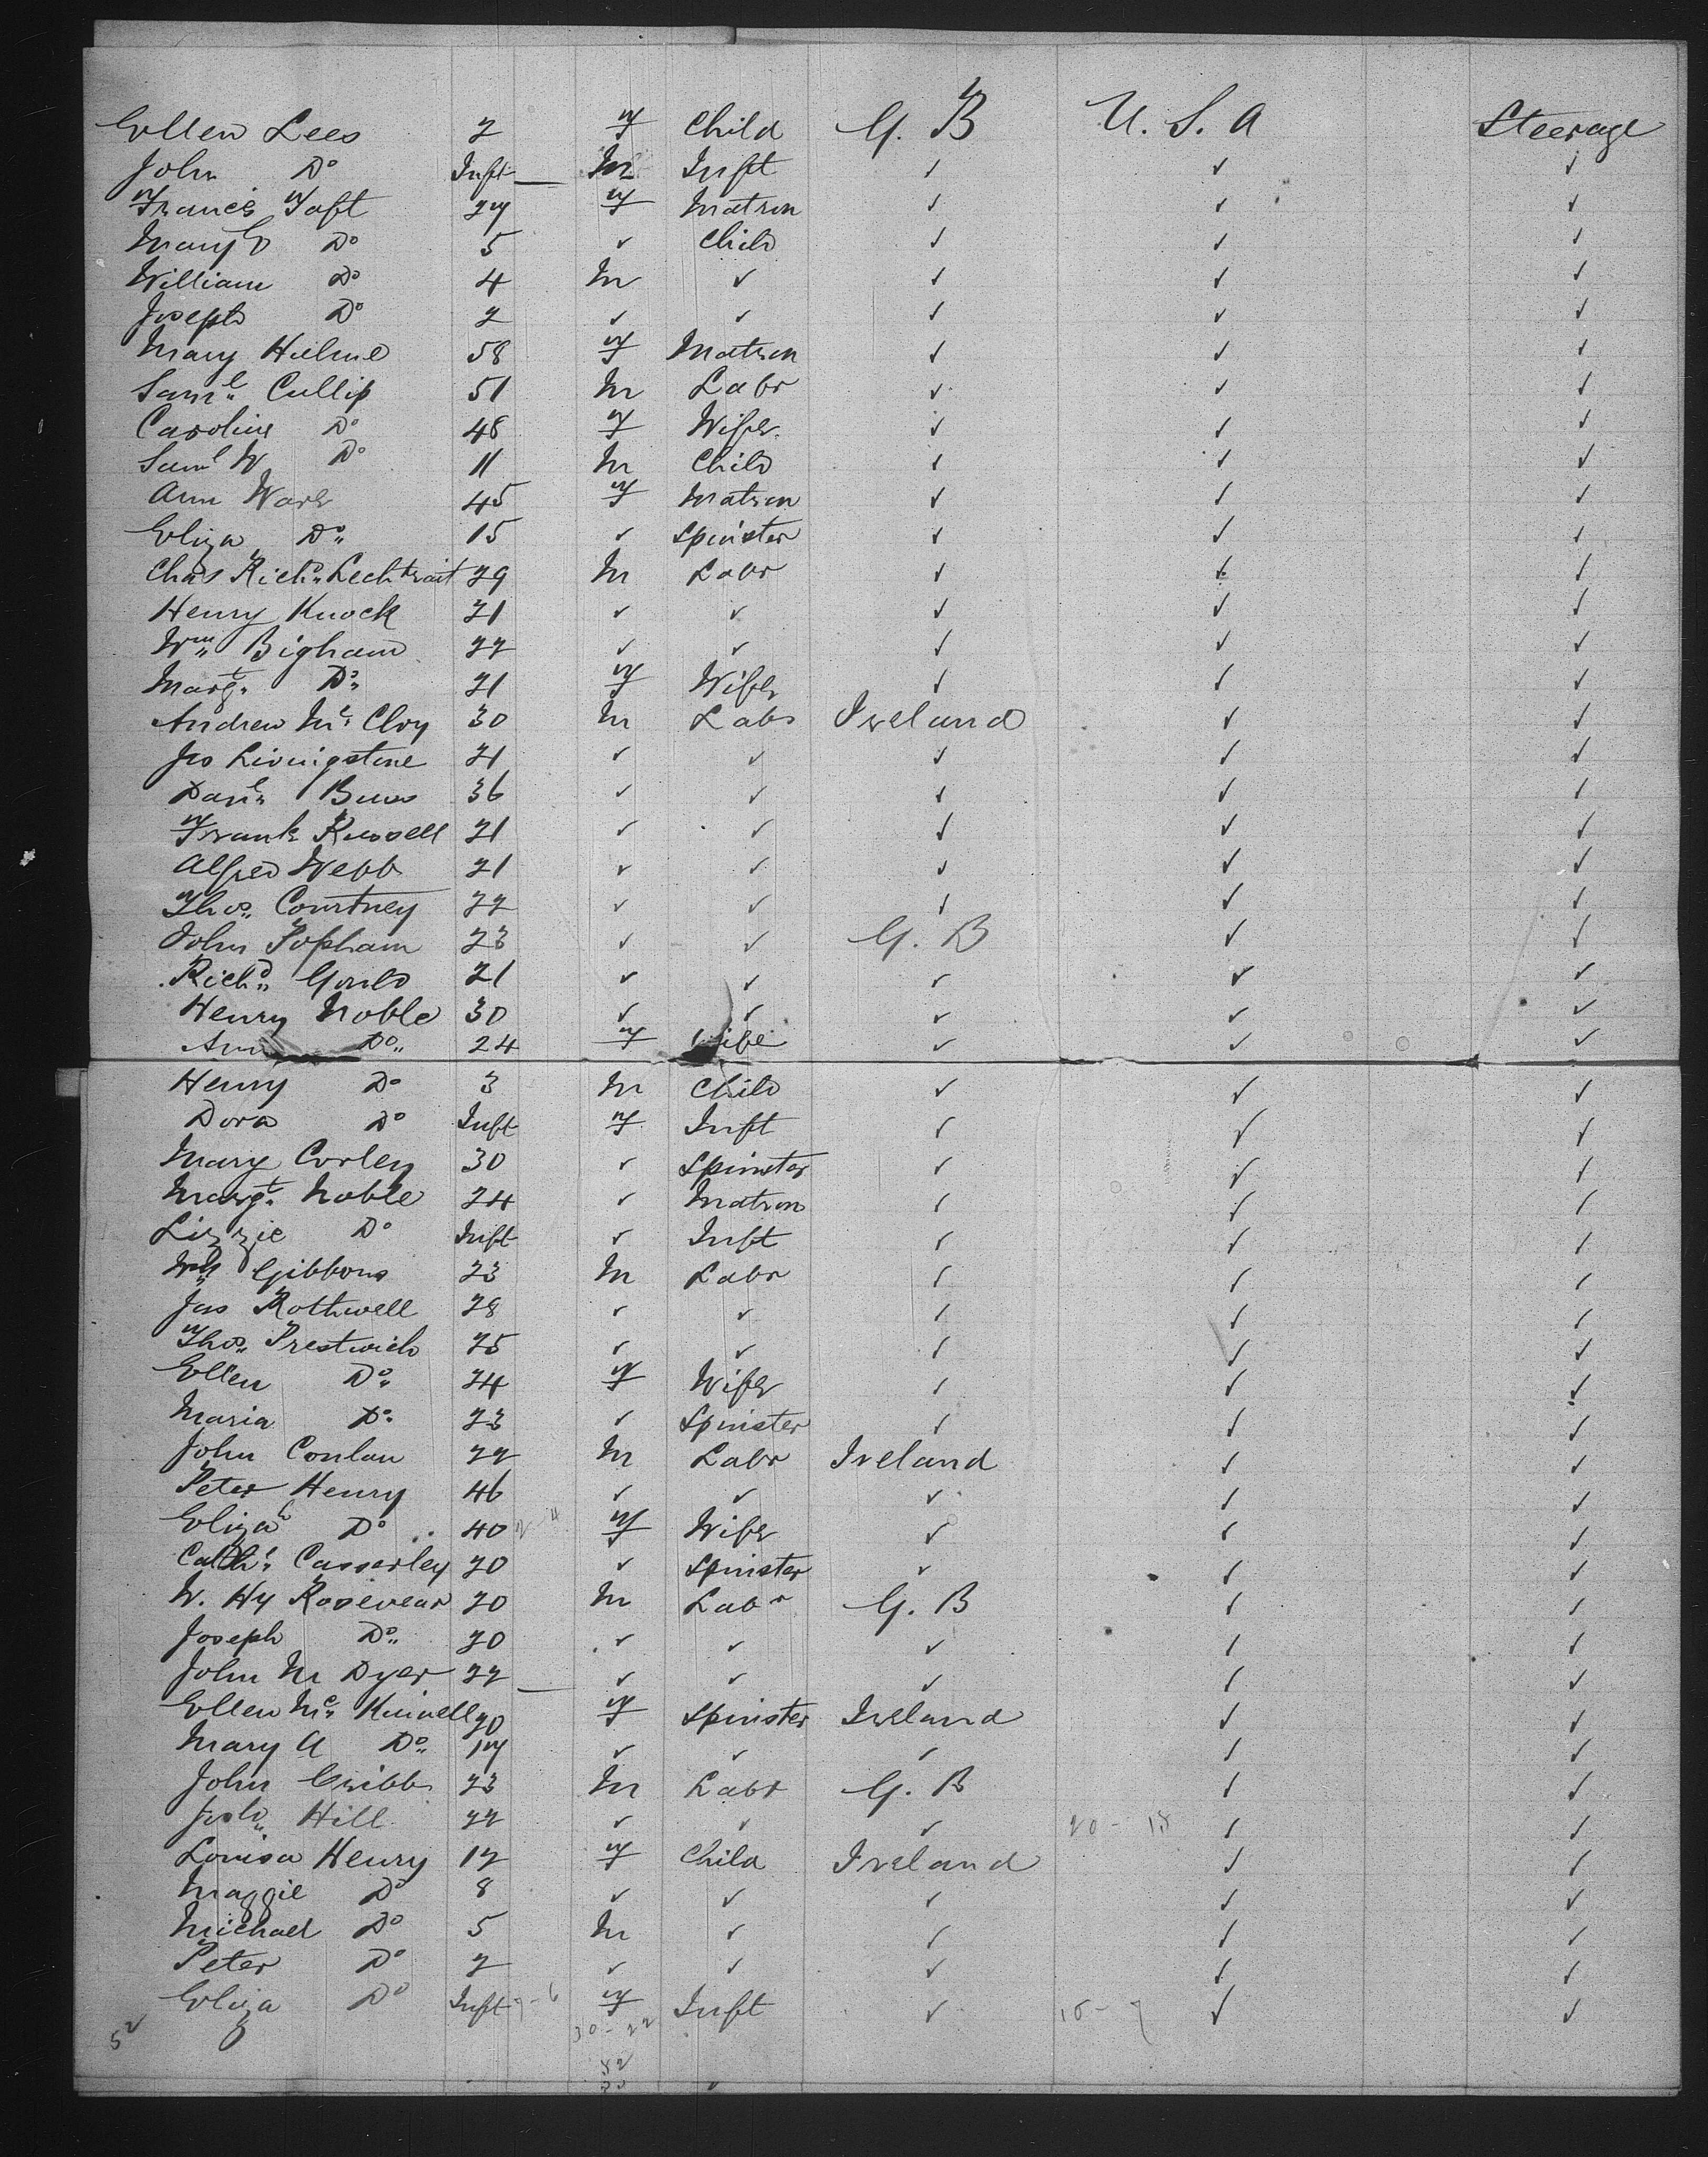 Ellen Lees 2 F Child G. B U. S. A Steerage
John Do Inft M Inft ✓ ✓ ✓
Francis Taft 27 F Matron ✓ ✓ ✓
Mary E Do 5 ✓ Child ✓ ✓ ✓
William Do 4 M ✓ ✓ ✓ ✓
Joseph Do 2 ✓ ✓ ✓ ✓ ✓
Mary Hulme 58 F Matron ✓ ✓ ✓
Saml. Cullip 51 M Labr ✓ ✓ ✓
Caroline Do 48 F Wife ✓ ✓ ✓
Saml W Do 11 M Child ✓ ✓ ✓
Ann Ware 45 F Matron ✓ ✓ ✓
Eliza Do 15 ✓ Spinster ✓ ✓ ✓
Chas Richd. 29 M Labr ✓ ✓ ✓
Henry Knock 21 ✓ ✓ ✓ ✓ ✓
Wm Bigham 22 ✓ ✓ ✓ ✓ ✓
Margt. Do 21 F Wife ✓ ✓ ✓
Andrew Mc. Cloy 30 M Labr Ireland ✓ ✓
Jas Livingstone 21 ✓ ✓ ✓ ✓ ✓
Danl. 36 ✓ ✓ ✓ ✓ ✓
Frank Russell 21 ✓ ✓ ✓ ✓ ✓
Alfred Webb 21 ✓ ✓ ✓ ✓ ✓
Thos. Courtney 22 ✓ ✓ ✓ ✓ ✓
John Popham 23 ✓ ✓ G. B ✓ ✓
Richd. Gould 21 ✓ ✓ ✓ ✓ ✓
Henry Noble 30 ✓ ✓ ✓ ✓ ✓
Ann Do 24 F Wife ✓ ✓ ✓
Henry Do 3 M Child ✓ ✓ ✓
Dora Do Inft F Inft ✓ ✓ ✓
Mary Corley 30 ✓ Spinster ✓ ✓ ✓
Margt. Noble 24 ✓ Matron ✓ ✓ ✓
Lizzie Do Inft ✓ Inft ✓ ✓ ✓
Wm Gibbons 23 M Labr ✓ ✓ ✓
Jas Rothwell 28 ✓ ✓ ✓ ✓ ✓
Thos. Prestwich 25 ✓ ✓ ✓ ✓ ✓
Ellen Do 24 F Wife ✓ ✓ ✓
Maria Do 23 ✓ Spinster ✓ ✓ ✓
John Conlan 22 M Labr Ireland ✓ ✓
Peter Henry 46 ✓ ✓ ✓ ✓ ✓
Elizah Do 40 F Wife ✓ ✓ ✓
Cathe. Casserley 20 ✓ Spinster ✓ ✓ ✓
W. Hy Rosevear 20 M Labr G. B ✓ ✓
Joseph Do 20 ✓ ✓ ✓ ✓ ✓
John M Dyer 22 ✓ ✓ ✓ ✓ ✓
Ellen Mc. Kinnell 20 F Spinster Ireland ✓ ✓
Mary A Do 17 ✓ ✓ ✓ ✓ ✓
John Cribb 23 M Labr G. B ✓ ✓
Hill 22 ✓ ✓ ✓ 20 - 18 ✓ ✓
Louisa Henry 12 F Child Ireland ✓ ✓
Maggie Do 8 ✓ ✓ ✓ ✓ ✓
Michael Do 5 M ✓ ✓ ✓ ✓
Peter Do 2 ✓ ✓ ✓ ✓ ✓
Eliza Do Inft F Inft ✓ ✓ ✓
52 30 - 22
52